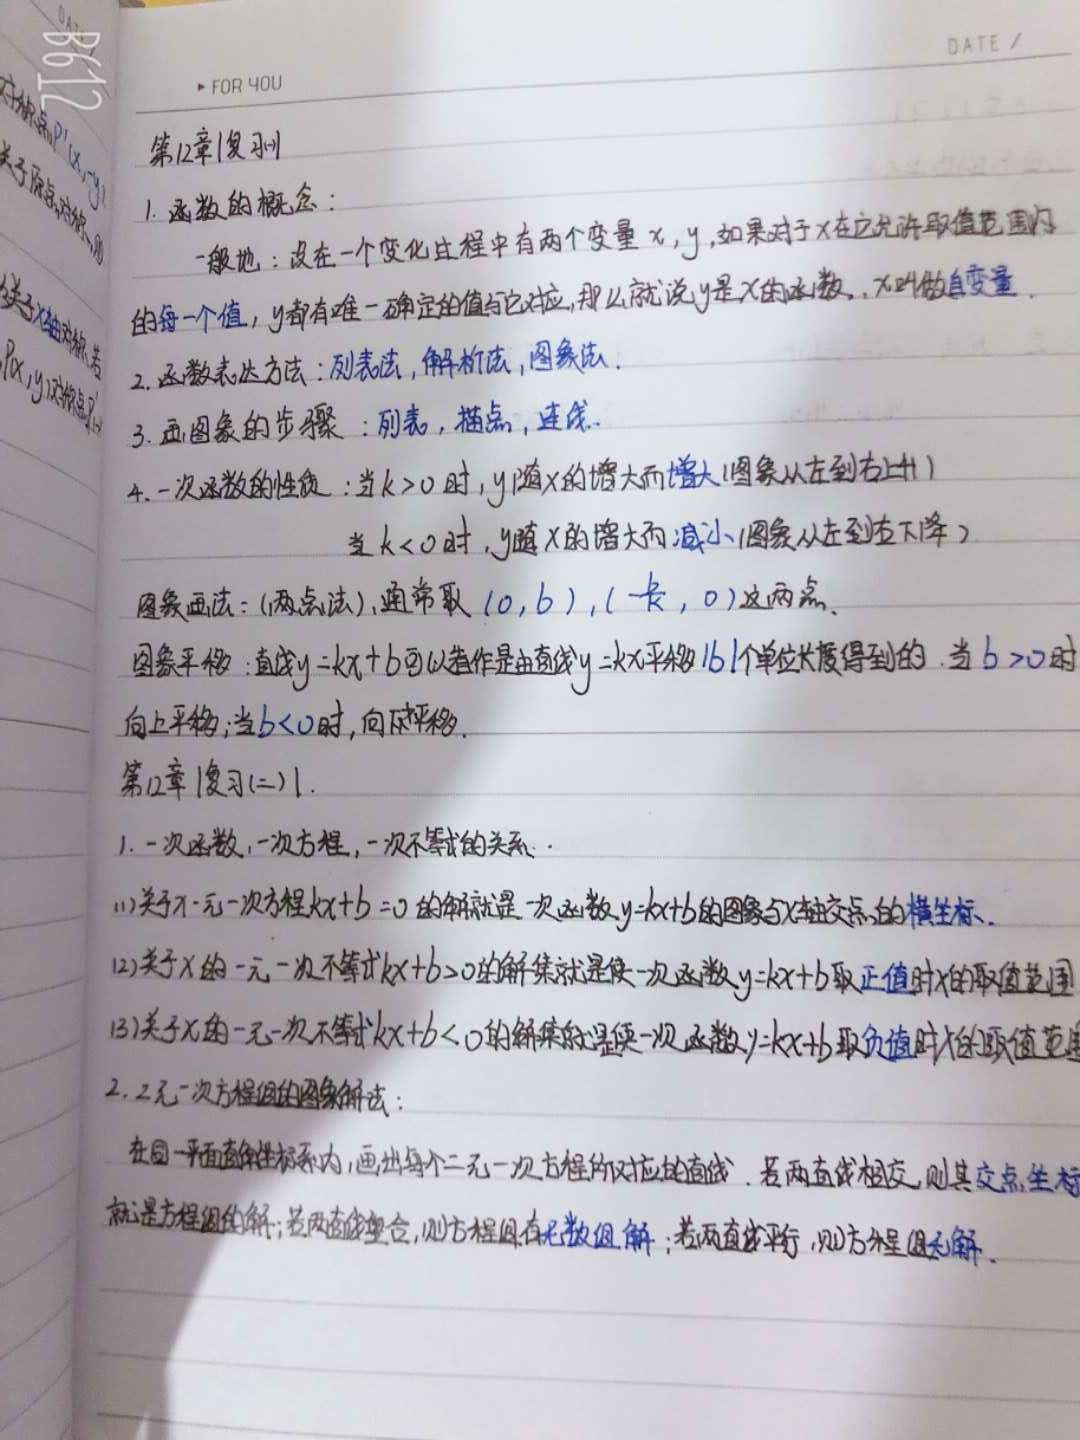 B612
DATE /
FOR YOU
对称点P'(x,-y)
关于原点对称,则
关于x轴对称,若
P(x,y)对称点P'
第12章|复习(一)|
1. 函数的概念:
一般地:设在一个变化过程中有两个变量x,y,如果对于x在它允许取值范围内
的每一个值,y都有唯一确定的值与它对应,那么就说y是x的函数,x叫做自变量.
2. 函数表达方法:列表法,解析法,图象法.
3. 画图象的步骤:列表,描点,连线.
4. 一次函数的性质:当k>0时,y随x的增大而增大(图象从左到右上升)
当k<0时,y随x的增大而减小(图象从左到右下降)
图象画法:(两点法),通常取(0,b),(-b/k,0)这两点.
图象平移:直线y=kx+b可以看作是由直线y=kx平移|b|个单位长度得到的.当b>0时
向上平移;当b<0时,向下平移.
第12章|复习(二)|.
1. 一次函数,一次方程,一次不等式的关系.
(1)关于x一元一次方程kx+b=0的解就是一次函数y=kx+b的图象与x轴交点的横坐标.
(2)关于x的一元一次不等式kx+b>0的解集就是使一次函数y=kx+b取正值时x的取值范围
(3)关于x的一元一次不等式kx+b<0的解集就是使一次函数y=kx+b取负值时x的取值范围
2. 2元一次方程组的图象解法:
在同一平面直角坐标系内,画出每个二元一次方程所对应的直线.若两直线相交,则其交点坐标
就是方程组的解;若两直线重合,则方程组有无数组解;若两直线平行,则方程组无解.